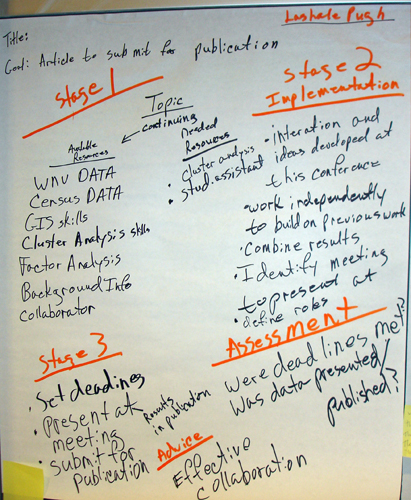 Lashale Pugh
Title:
Goal: Article to submit for publication
Stage 1
Topic
continuing
Available
Resources
WNV DATA
Census DATA
GIS skills
Cluster Analysis skills
Factor Analysis
Background Info
Collaborator
Needed
Resources
• cluster analysis
• stud. assistant
Stage 2
Implementation
• interation and
ideas developed at
this conference
• work independently
to build on previous work
• Combine results
• Identify meeting
• to present at
• define roles
Stage 3
• Set deadlines
• Present at
meeting
• submit for
publication
Results
in publication
Assessment
were deadlines met?
was data presented/
published?
Advice
Effective
Collaboration